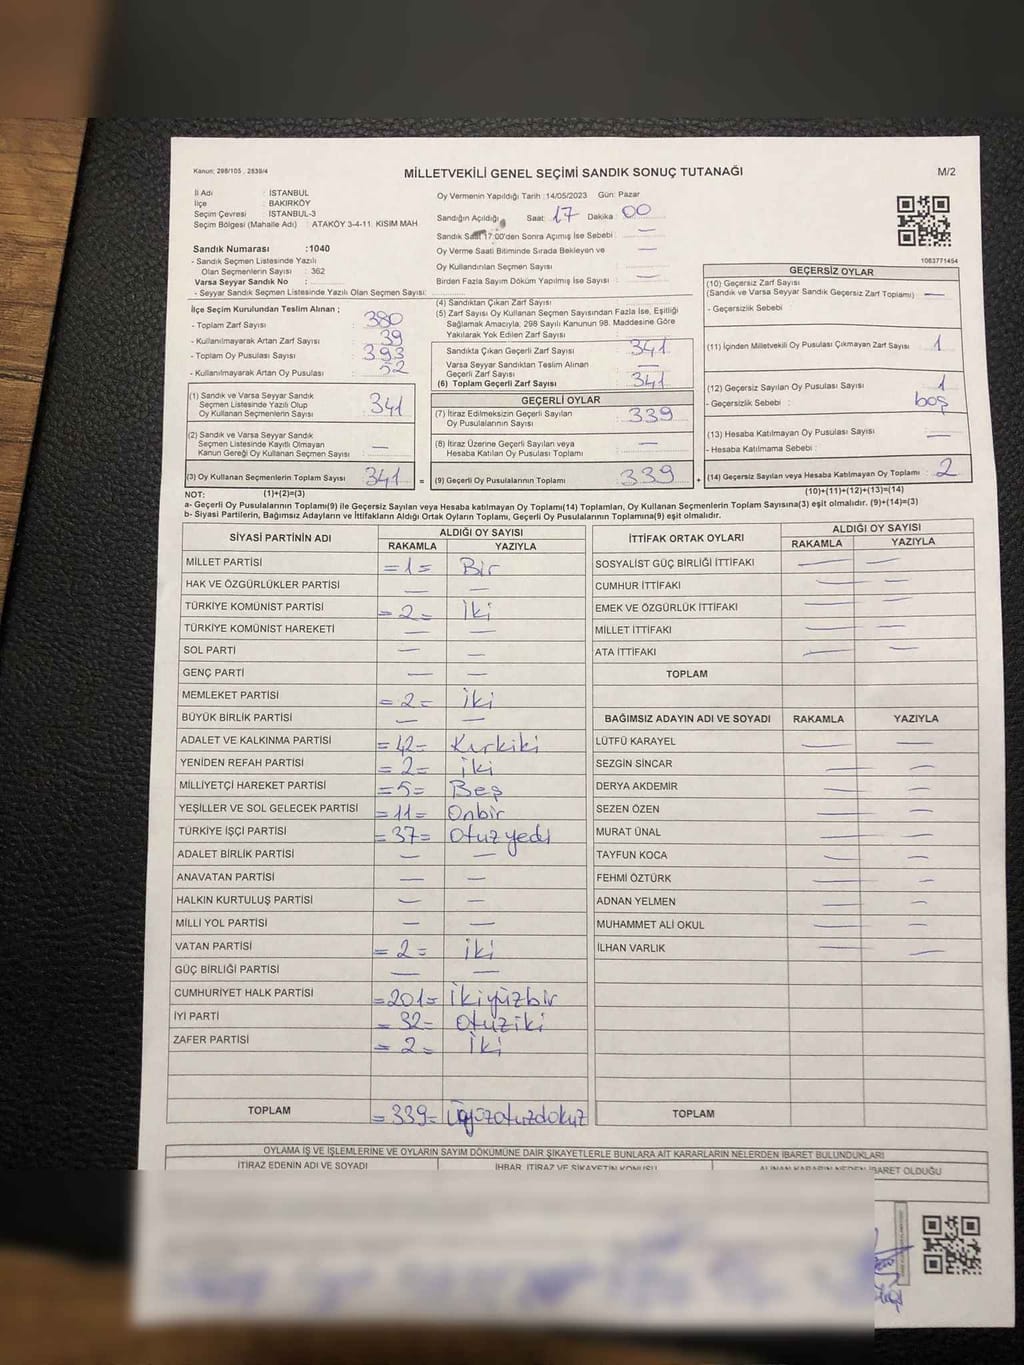 Kanun: 298/105 , 2839/4
MİLLETVEKİLİ GENEL SEÇİMİ SANDIK SONUÇ TUTANAĞI
M/2
İl Adı : İSTANBUL
İlçe : BAKIRKÖY
Seçim Çevresi : İSTANBUL-3
Seçim Bölgesi (Mahalle Adı) : ATAKÖY 3-4-11. KISIM MAH
Sandık Numarası :1040
- Sandık Seçmen Listesinde Yazılı
Olan Seçmenlerin Sayısı : 362
Varsa Seyyar Sandık No :
- Seyyar Sandık Seçmen Listesinde Yazılı Olan Seçmen Sayısı:
Oy Vermenin Yapıldığı Tarih :14/05/2023 Gün: Pazar
Sandığın Açıldığı Saat: 17 Dakika : 00
Sandık Saat 17:00'den Sonra Açımış İse Sebebi : —
Oy Verme Saati Bitiminde Sırada Bekleyen ve —
Oy Kullandırılan Seçmen Sayısı :
Birden Fazla Sayım Döküm Yapılmış İse Sayısı : —
1063771454
İlçe Seçim Kurulundan Teslim Alınan ;
- Toplam Zarf Sayısı : 380
- Kullanılmayarak Artan Zarf Sayısı : 39
- Toplam Oy Pusulası Sayısı : 393
- Kullanılmayarak Artan Oy Pusulası : 52
(1) Sandık ve Varsa Seyyar Sandık
Seçmen Listesinde Yazılı Olup
Oy Kullanan Seçmenlerin Sayısı : 341
(2) Sandık ve Varsa Seyyar Sandık
Seçmen Listesinde Kayıtlı Olmayan
Kanun Gereği Oy Kullanan Seçmen Sayısı : —
(3) Oy Kullanan Seçmenlerin Toplam Sayısı : 341 =
(1)+(2)=(3)
(4) Sandıktan Çıkan Zarf Sayısı :
(5) Zarf Sayısı Oy Kullanan Seçmen Sayısından Fazla İse, Eşitliği
Sağlamak Amacıyla, 298 Sayılı Kanunun 98. Maddesine Göre
Yakılarak Yok Edilen Zarf Sayısı :
Sandıkta Çıkan Geçerli Zarf Sayısı : 341
Varsa Seyyar Sandıktan Teslim Alınan
Geçerli Zarf Sayısı : —
(6) Toplam Geçerli Zarf Sayısı : 341
GEÇERLİ OYLAR
(7) İtiraz Edilmeksizin Geçerli Sayılan
Oy Pusulalarının Sayısı : 339
(8) İtiraz Üzerine Geçerli Sayılan veya
Hesaba Katılan Oy Pusulası Toplamı : —
(9) Geçerli Oy Pusulalarının Toplamı : 339 +
GEÇERSİZ OYLAR
(10) Geçersiz Zarf Sayısı :
(Sandık ve Varsa Seyyar Sandık Geçersiz Zarf Toplamı) —
- Geçersizlik Sebebi :
(11) İçinden Milletvekili Oy Pusulası Çıkmayan Zarf Sayısı : 1
(12) Geçersiz Sayılan Oy Pusulası Sayısı : 1
- Geçersizlik Sebebi : boş
(13) Hesaba Katılmayan Oy Pusulası Sayısı : —
- Hesaba Katılmama Sebebi :
(14) Geçersiz Sayılan veya Hesaba Katılmayan Oy Toplamı : 2
(10)+(11)+(12)+(13)=(14)
NOT:
a- Geçerli Oy Pusulalarının Toplamı(9) ile Geçersiz Sayılan veya Hesaba katılmayan Oy Toplamı(14) Toplamları, Oy Kullanan Seçmenlerin Toplam Sayısına(3) eşit olmalıdır. (9)+(14)=(3)
b- Siyasi Partilerin, Bağımsız Adayların ve İttifakların Aldığı Ortak Oyların Toplamı, Geçerli Oy Pusulalarının Toplamına(9) eşit olmalıdır.
SİYASİ PARTİNİN ADI ALDIĞI OY SAYISI
RAKAMLA YAZIYLA
MİLLET PARTİSİ =1= Bir
HAK VE ÖZGÜRLÜKLER PARTİSİ — —
TÜRKİYE KOMÜNİST PARTİSİ =2= İki
TÜRKİYE KOMÜNİST HAREKETİ — —
SOL PARTİ — —
GENÇ PARTİ — —
MEMLEKET PARTİSİ =2= İki
BÜYÜK BİRLİK PARTİSİ — —
ADALET VE KALKINMA PARTİSİ =42= Kırkiki
YENİDEN REFAH PARTİSİ =2= iki
MİLLİYETÇİ HAREKET PARTİSİ =5= Beş
YEŞİLLER VE SOL GELECEK PARTİSİ =11= Onbir
TÜRKİYE İŞÇİ PARTİSİ =37= Otuzyedi
ADALET BİRLİK PARTİSİ — —
ANAVATAN PARTİSİ — —
HALKIN KURTULUŞ PARTİSİ — —
MİLLİ YOL PARTİSİ — —
VATAN PARTİSİ =2= iki
GÜÇ BİRLİĞİ PARTİSİ — —
CUMHURİYET HALK PARTİSİ =201= İkiyüzbir
İYİ PARTİ =32= Otuziki
ZAFER PARTİSİ =2= İki
TOPLAM =339= Üçyüzotuzdokuz
İTTİFAK ORTAK OYLARI ALDIĞI OY SAYISI
RAKAMLA YAZIYLA
SOSYALİST GÜÇ BİRLİĞİ İTTİFAKI — —
CUMHUR İTTİFAKI — —
EMEK VE ÖZGÜRLÜK İTTİFAKI — —
MİLLET İTTİFAKI — —
ATA İTTİFAKI — —
TOPLAM
BAĞIMSIZ ADAYIN ADI VE SOYADI RAKAMLA YAZIYLA
LÜTFÜ KARAYEL — —
SEZGİN SİNCAR — —
DERYA AKDEMİR — —
SEZEN ÖZEN — —
MURAT ÜNAL — —
TAYFUN KOCA — —
FEHMİ ÖZTÜRK — —
ADNAN YELMEN — —
MUHAMMET ALİ OKUL — —
İLHAN VARLIK — —
TOPLAM
OYLAMA İŞ VE İŞLEMLERİNE VE OYLARIN SAYIM DÖKÜMÜNE DAİR ŞİKAYETLERLE BUNLARA AİT KARARLARIN NELERDEN İBARET BULUNDUKLARI
İTİRAZ EDENİN ADI VE SOYADI İHBAR, İTİRAZ VE ŞİKAYETİN KONUSU ALINAN KARARIN NEDEN İBARET OLDUĞU